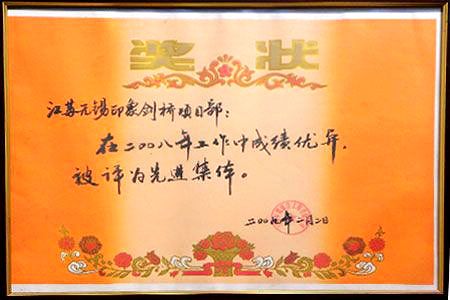 奖状
江苏无锡印象剑桥项目部：
在二〇〇八年工作中成绩优异，
被评为先进集体。
二〇〇九年二月二日